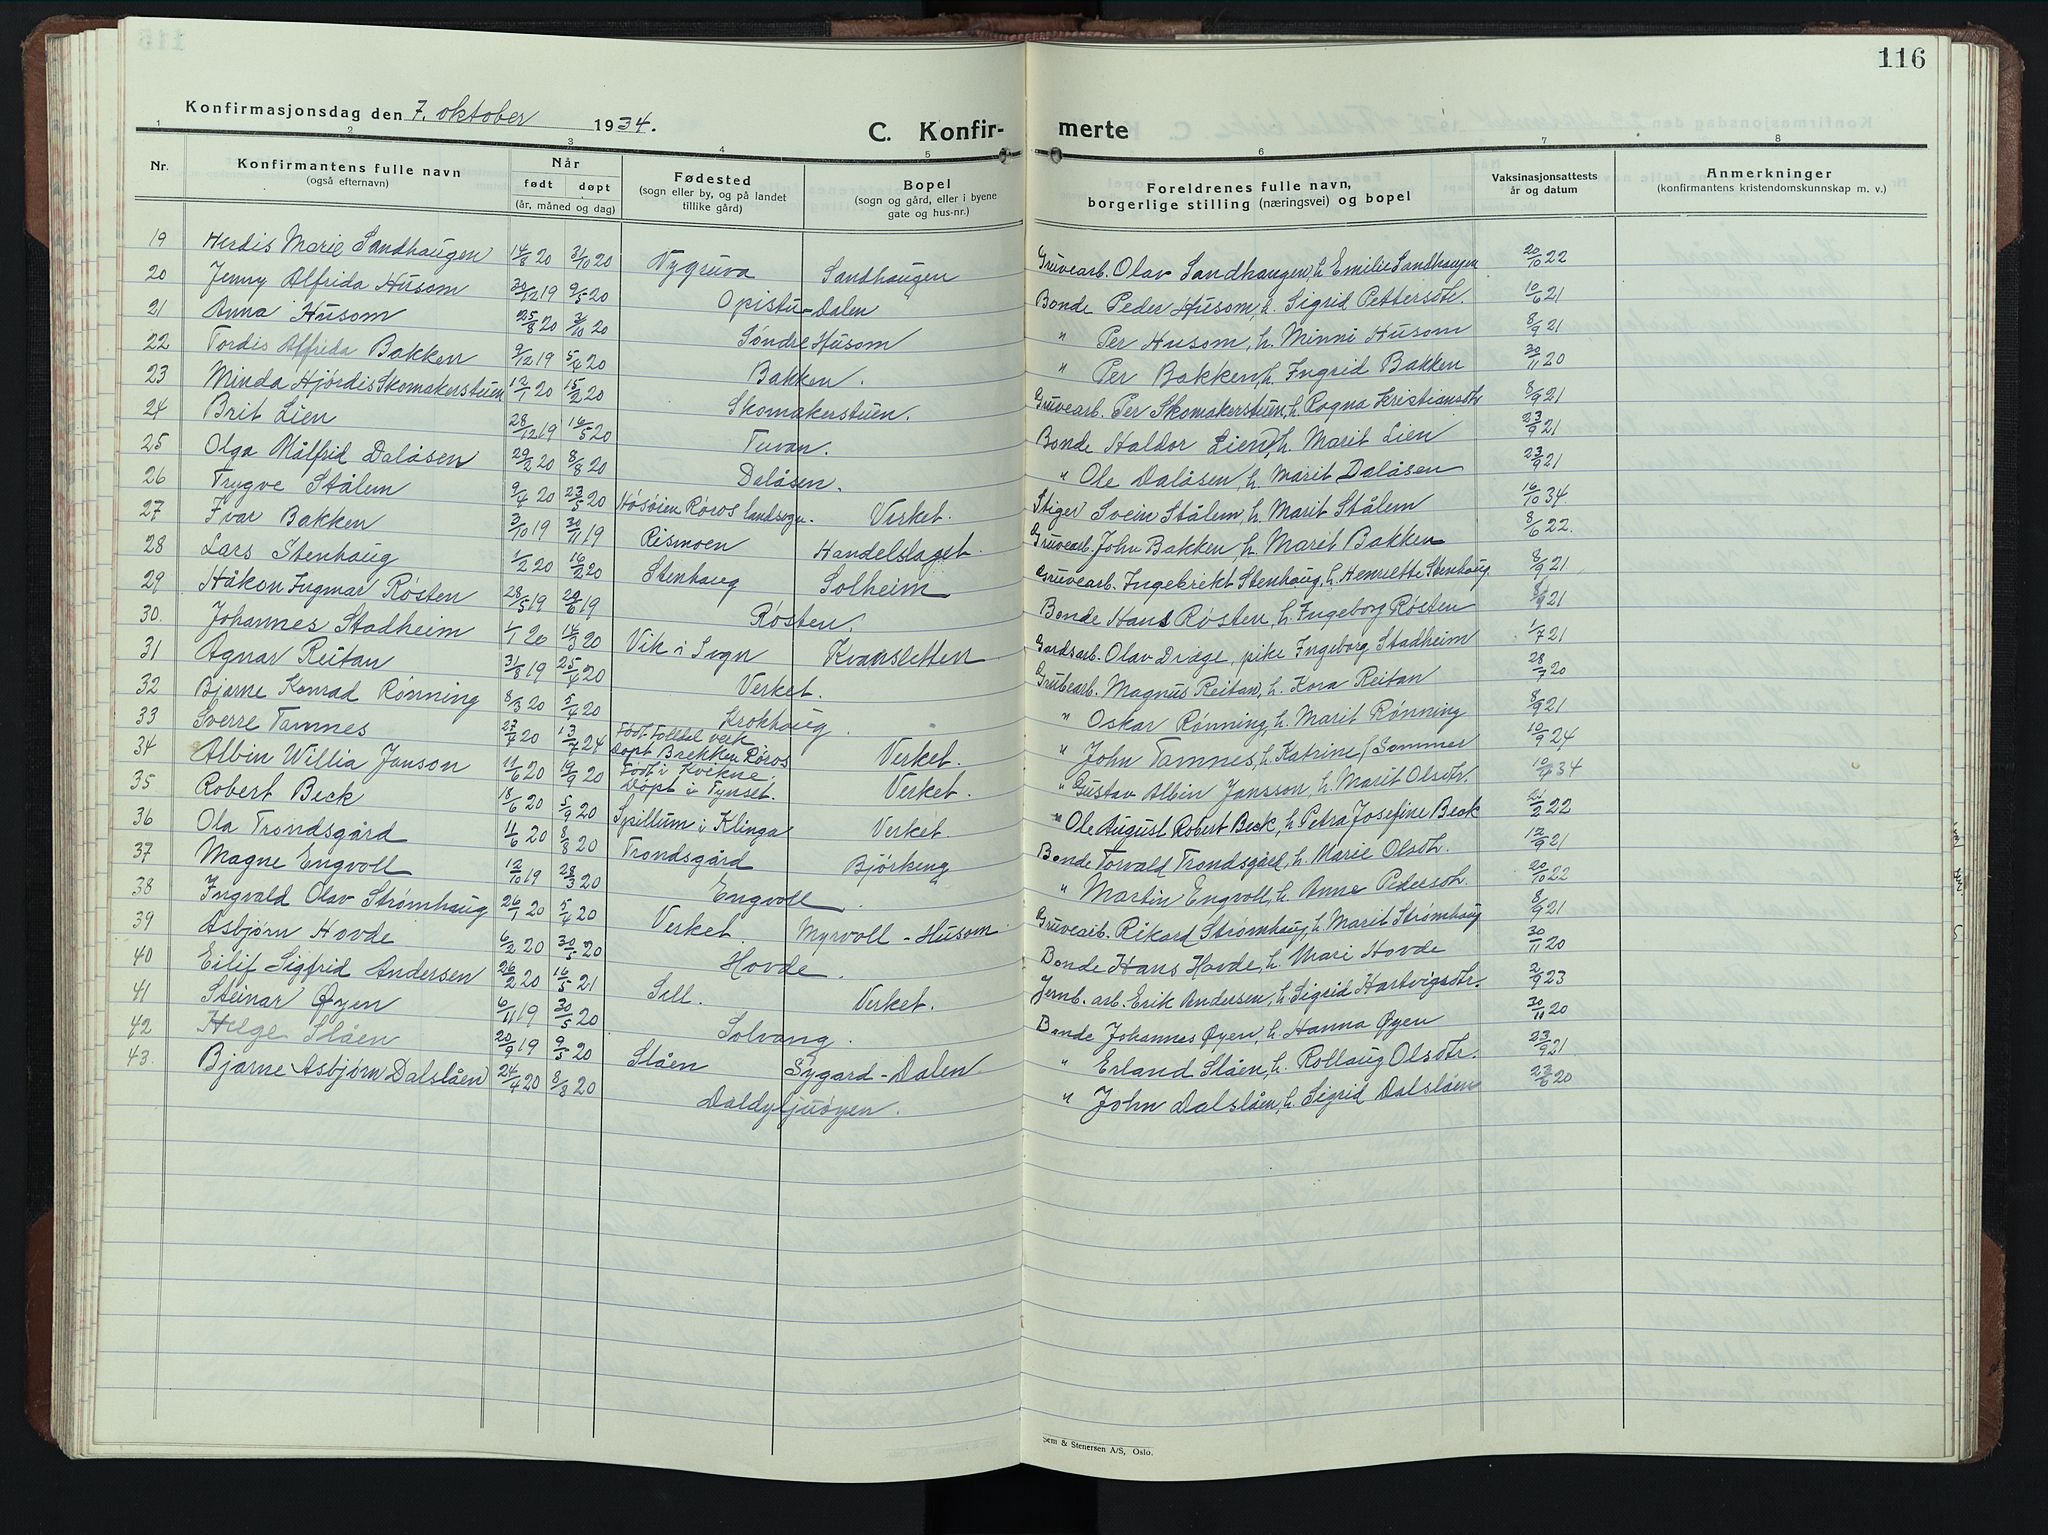 116
Konfirmasjonsdag den 7. oktober 1934.
C. Konfir- merte
1 2 3 4 5 6 7 8
Nr. Konfirmantens fulle navn (også efternavn) Når født døpt (år, måned og dag) Fødested (sogn eller by, og på landet tillike gård) Bopel (sogn og gård, eller i byene gate og hus-nr.) Foreldrenes fulle navn, borgerlige stilling (næringsvei) og bopel Vaksinasjonsattests år og datum Anmerkninger (konfirmantens kristendomskunnskap m. v.)
19 Herdis Marie Sandhaugen 14/8 20 31/10 20 Nygruva Sandhaugen Gruvearb. Olav Sandhaugen, h. Emilie Sandhaugen 20/10 22
20 Jenny Alfrida Husom 30/12 19 9/5 20 Opistu-Dalen Bonde Peder Husom, h. Sigrid Pettersdtr. 10/6 21
21 Anna Husom 25/8 20 3/10 20 Søndre Husom " Per Husom, h. Minni Husom 8/9 21
22 Tordis Alfrida Bakken 9/12 19 5/4 20 Bakken. " Per Bakken, h. Ingrid Bakken 30/11 20
23 Minda Hjørdis Skomakerstuen 12/1 20 15/2 20 Skomakerstuen. Gruvearb. Per Skomakerstuen, h. Ragna Kristiansdtr 8/9 21
24 Brit Lien 28/12 19 16/5 20 Tuvan. Bonde Haldor Lien, h. Marit Lien 23/9 21
25 Olga Målfrid Dalåsen 29/2 20 8/8 20 Dalåsen. " Ole Dalåsen, h. Marit Dalåsen 23/9 21
26 Trygve Stålem 9/4 20 23/5 20 Høsøien Røros landsogn. Verket. Stiger Svein Stålem, h. Marit Stålem 16/10 34.
27 Ivar Bakken 3/10 19 30/11 19 Rismoen Handelslaget. Gruvearb. John Bakken, h. Marit Bakken 8/6 22.
28 Lars Stenhaug 1/2 20 16/2 20 Stenhaug Solheim Gruvearb. Ingebrekt Stenhaug, h. Henriette Stenhaug. 8/9 21
29 Håkon Ingmar Røsten 28/5 19 29/6 19 Røsten. Bonde Hans Røsten, h. Ingeborg Røsten 8/9 21
30. Johannes Stadheim 1/1 20 14/3 20 Vik i Sogn Kvansletten Gardsarb. Olav Drage, pike Ingeborg Stadheim 1/7 21
31 Agnar Reitan 31/8 19 25/4 20 Verket. Grubearb. Magnus Reitan, h. Kora Reitan 28/7 20
32 Bjarne Konrad Rønning 8/3 20 5/4 20 Krokhaug. " Oskar Rønning, h. Marit Rønning 8/9 21
33 Sverre Tamnes 27/4 20 13/7 24 Født Folldal verk døpt Brekken Røros Verket. " John Tamnes, h. Katrine f. Sommer 10/9 24
34 Albin Willia Janson 11/6 20 19/9 20 Født i Kvikne. Døpt i Tynset. Verket. " Gustav Albin Jansson, h. Marit Olsdtr. 10/4 34
35 Robert Beck 18/6 20 5/9 20 Spillum i Klinga Verket. " Ole August Robert Beck, h. Petra Josefine Beck 21/2 22
36 Ola Trondsgård 11/6 20 8/8 20 Trondsgård Bjørkeng Bonde Torvald Trondsgård, h. Marie Olsdtr. 12/9 21
37 Magne Engvoll 12/10 19 28/3 20 Engvoll. " Martin Engvoll, h. Anne Pedersdtr. 20/10 22
38 Ingvald Olav Strømhaug 26/1 20 5/4 20 Verket. Myrvoll - Husom. Gruvearb. Rikard Strømhaug, h. Marit Strømhaug 8/9 21
39 Asbjørn Hovde 6/2 20 30/5 20 Hovde. Bonde Hans Hovde, h. Mari Hovde 30/11 20
40 Eilif Sigfrid Andersen 26/2 20 16/5 21 Sell. Verket. Jernb. arb. Erik Andersen, h. Sigrid Hartvigsdtr. 2/9 23
41 Steinar Øyen 6/11 19 30/5 20 Solvang. Bonde Johannes Øyen, h. Hanna Øyen 30/11 20
42 Helge Slåen 20/9 19 9/5 20 Slåen Sygard-Dalen " Erland Slåen, h. Rollaug Olsdtr. 23/9 21
43. Bjarne Asbjørn Dalslåen 24/4 20 8/8 20 Daldyljuøyen. " John Dalslåen, h. Sigrid Dalslåen 23/6 20
Sem & Stenersen A/S, Oslo.